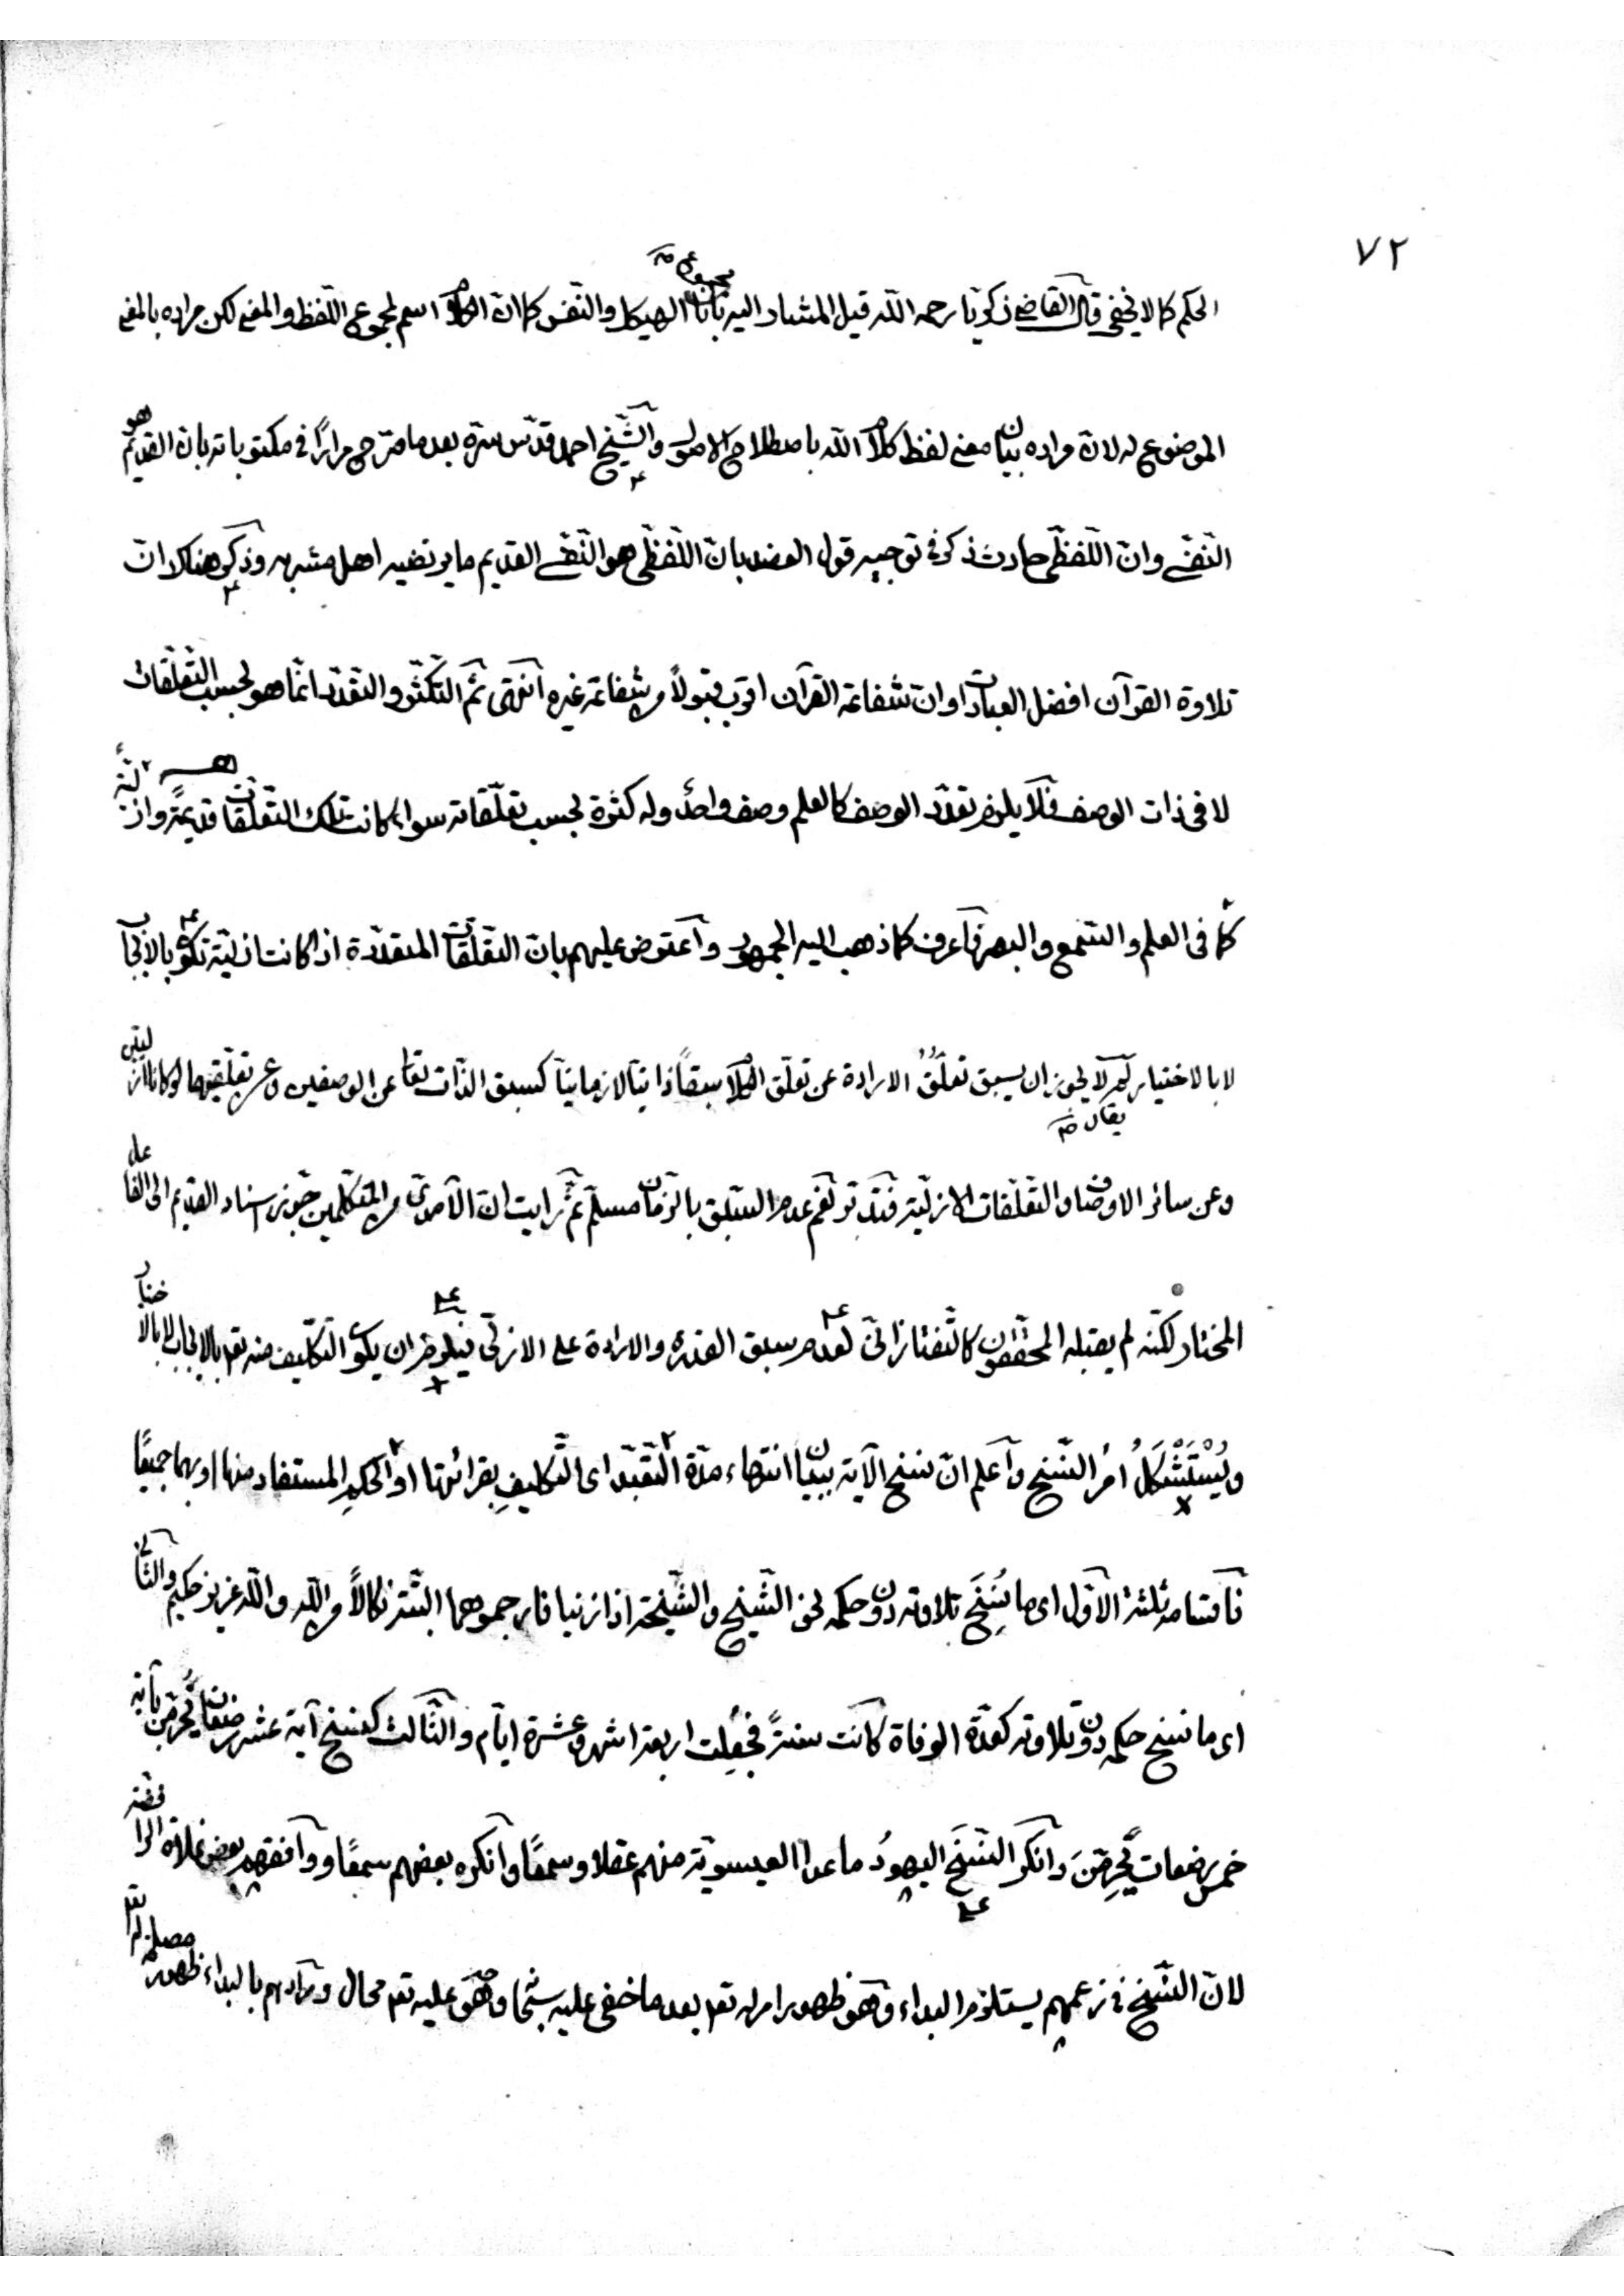 ٧٢
الحكم كما لا يخفى قال القاضي زكريا رحمه الله قيل المشار اليه بانا مجموع الهيكل والنفس كما ان الكلام اسم لمجموع اللفظ والمعنى لكن مراده بالمعنى
الموضوع له لان مراده بيان معنى لفظ كلام الله باصطلاح الاصول والشيخ احمد قدس سره بعد ما صرح مرارًا في مكتوباته بان القديم هو
النفسي وان اللفظي حادث ذكر في توجيه قول العضد بان اللفظي هو النفسي القديم ما يرتضيه اهل مشربه وذكر هناك ان
تلاوة القرآن افضل العبادات وان شفاعة القرآن اقرب قبولاً من شفاعة غيره انتهى ثم التكثر والتعدد انما هو بحسب التعلقات
لا في ذات الوصف فلا يلزم تعدد الوصف كالعلم وصف واحد وله كثرة بحسب تعلقاته سواء كانت تلك التعلقات قديمة وازلية
كما في العلم والسمع والبصر فاعرف كما ذهب اليه الجمهور واعترض عليهم بان التعلقات المتعددة اذا كانت ازلية تكون بالايجاب
لا بالاختيار لم لا يجوز ان يسبق تعلق الارادة عن تعلق الكلام سبقًا ذاتيا لا زمانيا كسبق الذات تعالى عن الوصفين وعن تعلقيهما لو كانا ازليين
يقال
وعن سائر الاوصاف والتعلقات الازلية فتدبر نعم عدم السبق بالزمان مسلم ثم رايت ان الآمدي من المتكلمين جوز اسناد القديم الى الفاعل
المختار لكنه لم يقبله المحققون كالتفتازاني لعدم سبق القدرة والارادة على الازلي فيلزم ان يكون التكليف منه تعـ بالايجاب لا بالاختيار
ويُسْتَشْكَلُ امرُ النسخ واعلم ان نسخ الآية بيان انتهاء مدة التعبد اى التكليفِ بقرائتها او الحكمِ المستفاد منها او بهما جميعًا
فاقسامه ثلثة الاول اى ما نُسِخَ تلاوته دون حكمه نحو الشيخ والشيخة اذا زنيا فارجموهما البتة نكالاً من الله والله عزيز حكيم والثاني
اى ما نسخ حكمه دون تلاوته كعدة الوفاة كانت سنةً فجُعِلت اربعة اشهر وعشرة ايام والثالث كنسخ آية عشر رضعات يُحرّمن بآية
خمس رضعات يُحرِّمنَ وانكر النسخَ اليهودُ ما عدا العيسوية منهم عقلا وسمعًا وانكره بعضهم سمعًا ووافقهم بعض غلاة الرافضة
لان النسخ في زعمهم يستلزم البداء وهو ظهور امر له تعـ بعد ما خفى عليه شيئا وهو عليه تعـ محال ومرادهم بالبداء ظهور مصلحة